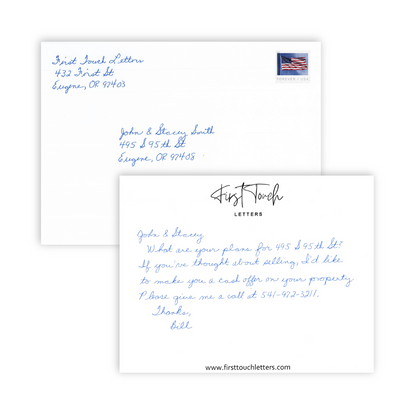 First Touch Letters
432 First St
Eugene, OR 97403
John & Stacey South
495 S 95th St
Eugene, OR 97408
First Touch
LETTERS
John & Stacey
What are your plans for 495 S 95th St?
If you've thought about selling, I'd like
to make you a cash offer on your property.
Please give me a call at 541-972-3211.
Thanks,
Bill
www.firsttouchletters.com